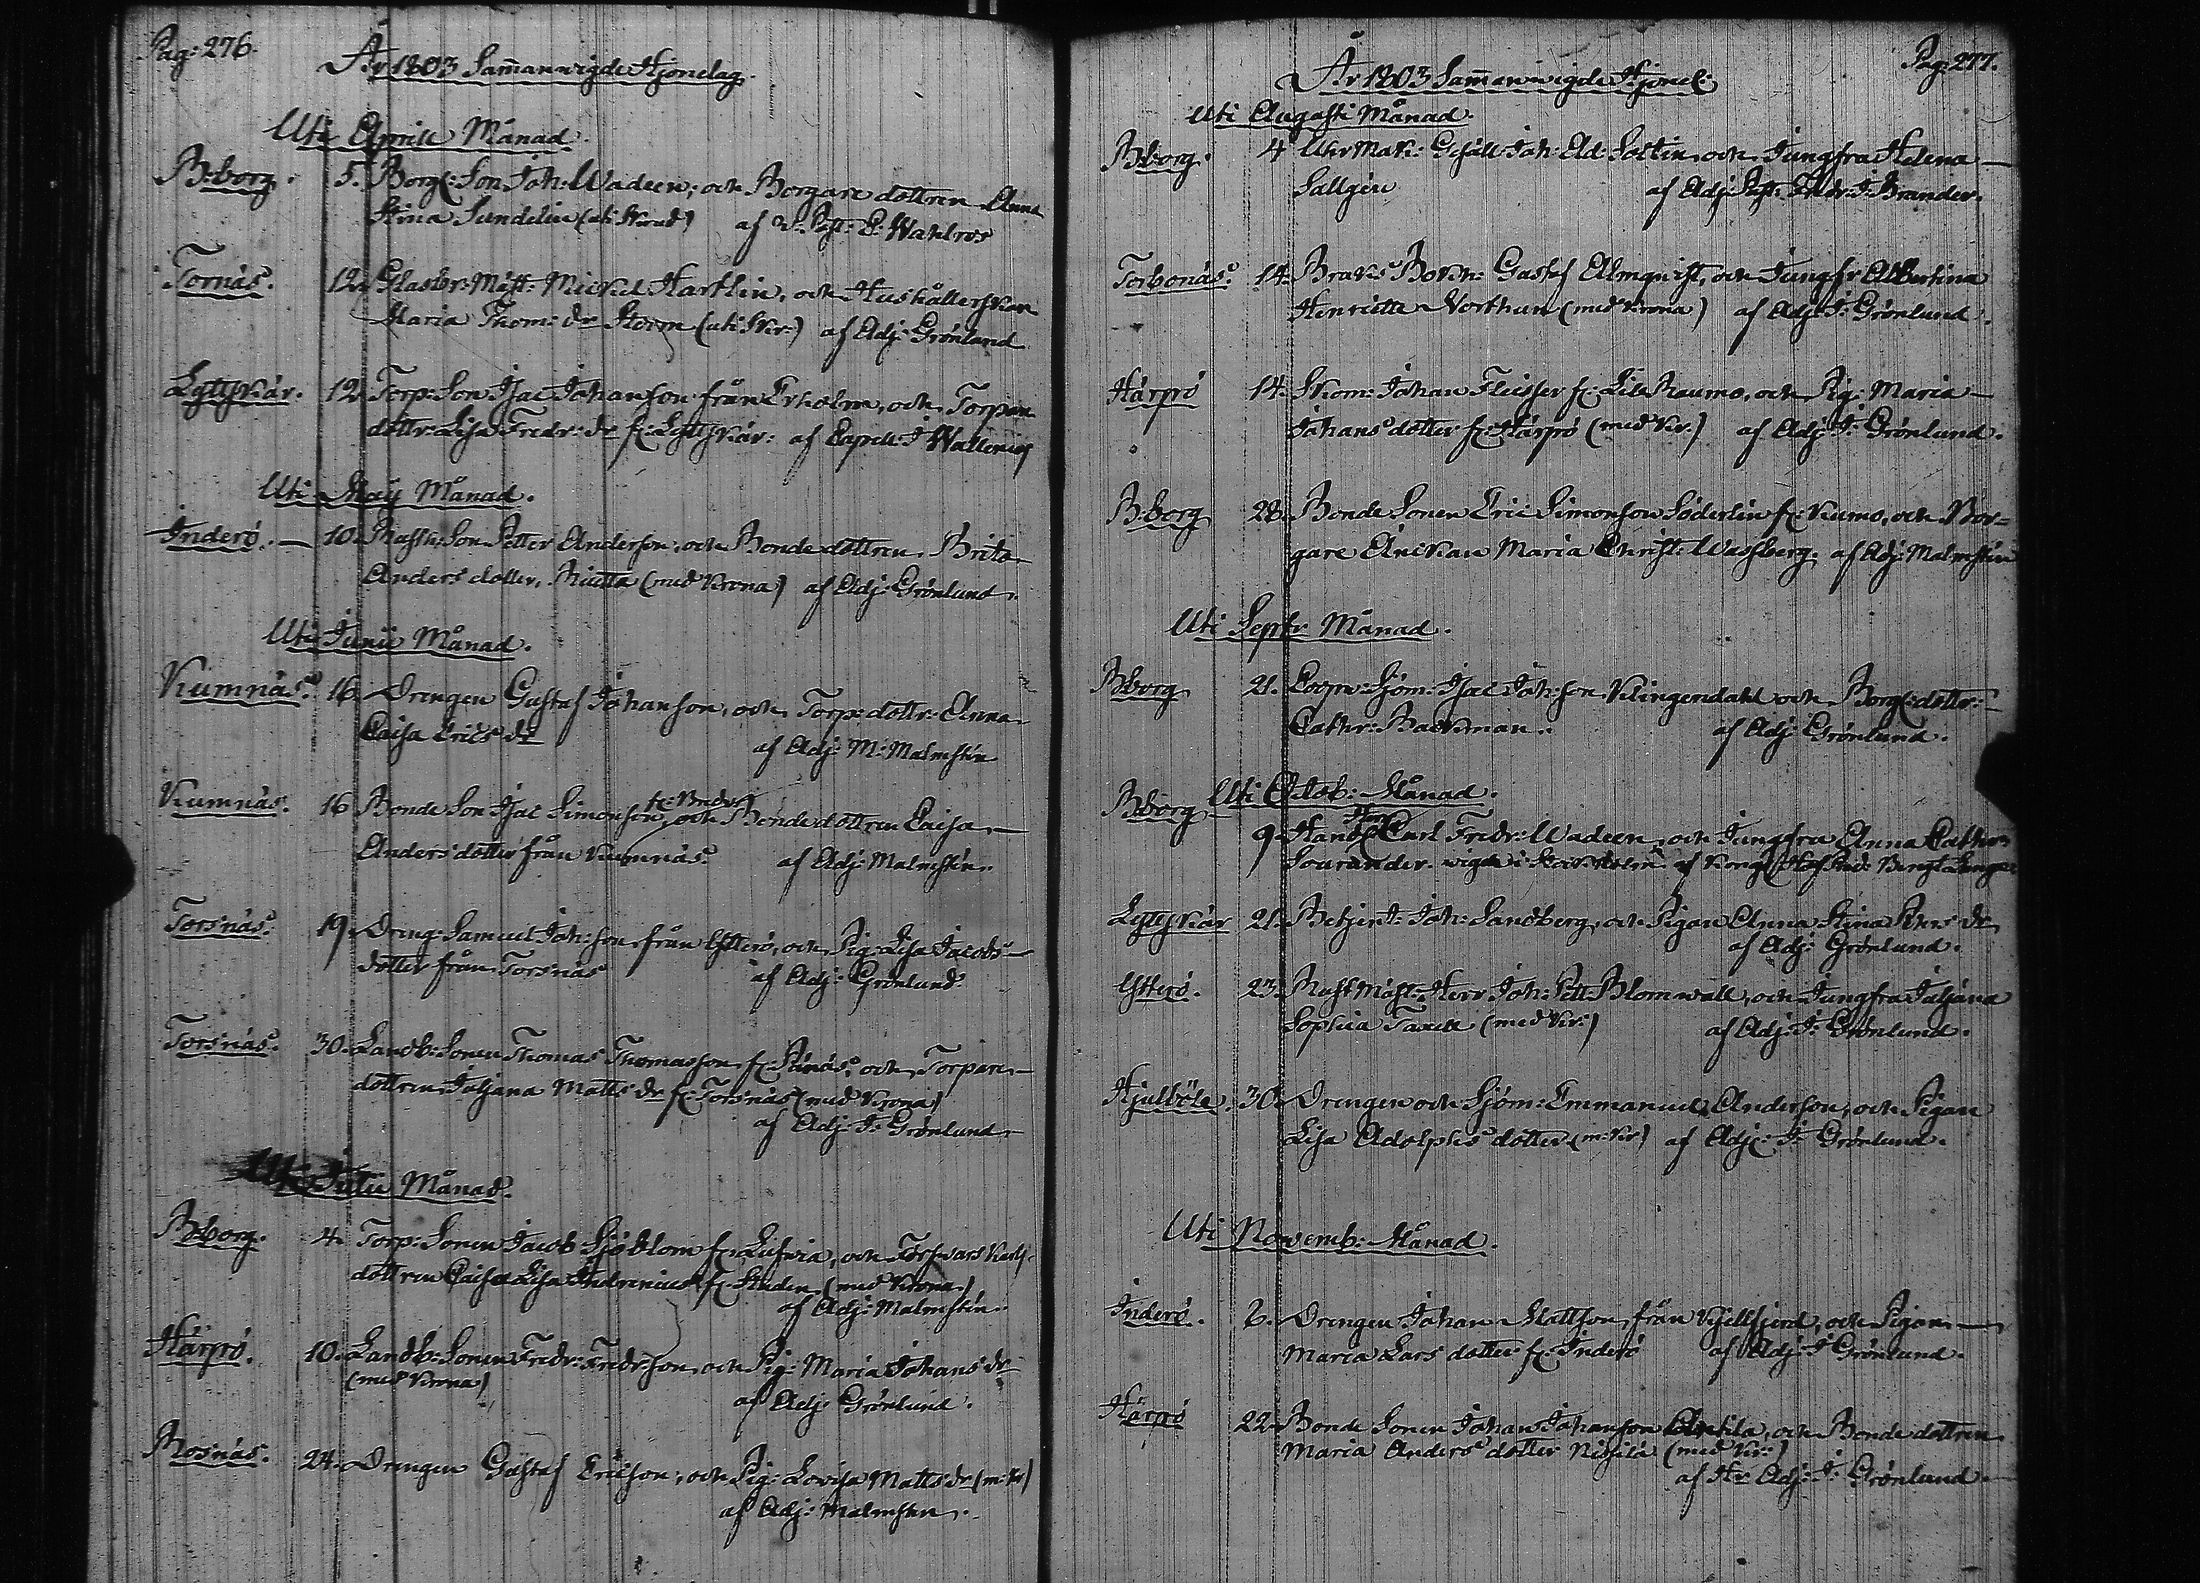 Pag: 276.
År 1803 Sam̄anvigde Hjonelag.
Uti Aprill Månad.
B:borg. 5. Borg: Son Joh: Wadeen, och Borgare dottren Anna
Stina Sundelin (uti Skrud) af V. Past: E: Wahlros
Tornäs. 12. Glasbr: Mäst: Mickel Hartlin, och Hushållerskan
Maria Thom: dr Storm (uti Skr:) af Adj: Grönlund
Lyttskär. 12. Torp: Son Isac Johanson från Trholm, och Torpare
dottr: Lisa Fredr: dr fr: Lyttskär: af Capell: J Wallenius
Uti Maij Månad.
Inderö. 10. Rusth: Son Petter Anderson, och Bonde dottren Brita
Anders dotter, Kiutta (med Krona) af Adj: Grönlund.
Uti Junii Månad.
Kumnäs. 16. Drengen Gustaf Johanson, och Torp: dottr: Anna
Caisa Erics dr af Adj: M: Malmstén
Kumnäs. 16 Bonde Son Isac Simonson, fr: och Bonde dottren Caisa
Anders dotter från Kumnäs. af Adj: Malmstén.
Torsnäs. 19. Dreng: Samuel Joh:son från Ytterö, och Pig: Lisa Jacobs
dotter från Torsnäs af Adj: Grönlund.
Torsnäs. 30. Landb: Sonen Thomas Thomasson fr: Pänäs, och Torpare
dottren Juljana Matts dr fr: Torsnäs (med Krona)
af Adj: J: Grönlund
Uti Julii Månad.
B:borg. 4. Torp: Sonen Jacob Sjöblom fr: Lufvia, och Försvars Karls
dottren Caisa Lisa Andrenius fr: Staden (med Krona)
af Adj: Malmstén.
Härpö. 10. Landb: Sonen Fredr: Fredrson, och Pig: Maria Johans dr
(med Krona)
af Adj: Grönlund.
Rosnäs. 24. Drengen Gustaf Ericson, och Pig: Lovisa Matts dr (m: Kr)
af Adj: Malmstén.
Pag: 277.
År 1803 Sam̄anvigde Hjonel:
Uti Augusti Månad.
B:borg. 4 Uhr Mak: Gesäll Joh: Ad: Soltin, och Jungfru Helena
Sallgén af Adj: Past: Fredr: J: Brander.
Torbonäs. 14. Bruks Bokh: Gustaf Almqvist, och Jungfr Albertina
Henriette Northun (med Krona) af Adj: J: Grönlund.
Härpö 14. Skom: Johan Fleisser fr: Lill Raumo, och Pig: Maria
Johans dotter fr: Härpö (med Kr:) af Adj: J: Grönlund.
B:borg 28. Bonde Sonen Eric Simonson Söderlin fr: Kumo, och Bor-
gare Änkan Maria Christ: Wassberg. af Adj: Malmstén
Uti Septr Månad.
B:borg 21. Coopv: Sjöm: Isac Joh:son Klingendahl och Borg: dottr:
Cathr: Backman. af Adj: Grönlund.
B:borg Uti Octob: Månad.
9. Hand: Carl Fredr: Wadeen, och Jungfru Anna Cathr:
Sourander. vigde i Stockholm af Kongl: Hof Pred: Bengt
Lyttskär 21. Betjent: Joh: Sandberg, och Pigan Anna Stina Pehrs dr
af Adj: Grönlund.
Ytterö. 23. Rust Mäst: Herr Joh: Pett: Blomwall, och Jungfru Juljana
Sophia Taxell (med Kr:) af Adj: J: Grönlund.
Hjulböle. 30. Drengen och Sjöm: Emmanuel Anderson, och Pigan
Lisa Adolphs dotter (m: Kr) af Adj: J: Grönlund.
Uti Novemb: Månad.
Inderö. 6. Drengen Johan Mattson från Kjellfjerd, och Pigan
Maria Lars dotter fr: Inderö af Adj: J Grönlund.
Härpö 22. Bonde Sonen Johan Johanson Anttila, och Bonde dottren
Maria Anders dotter Nissilä (med Kr:)
af Hr Adj: J: Grönlund.